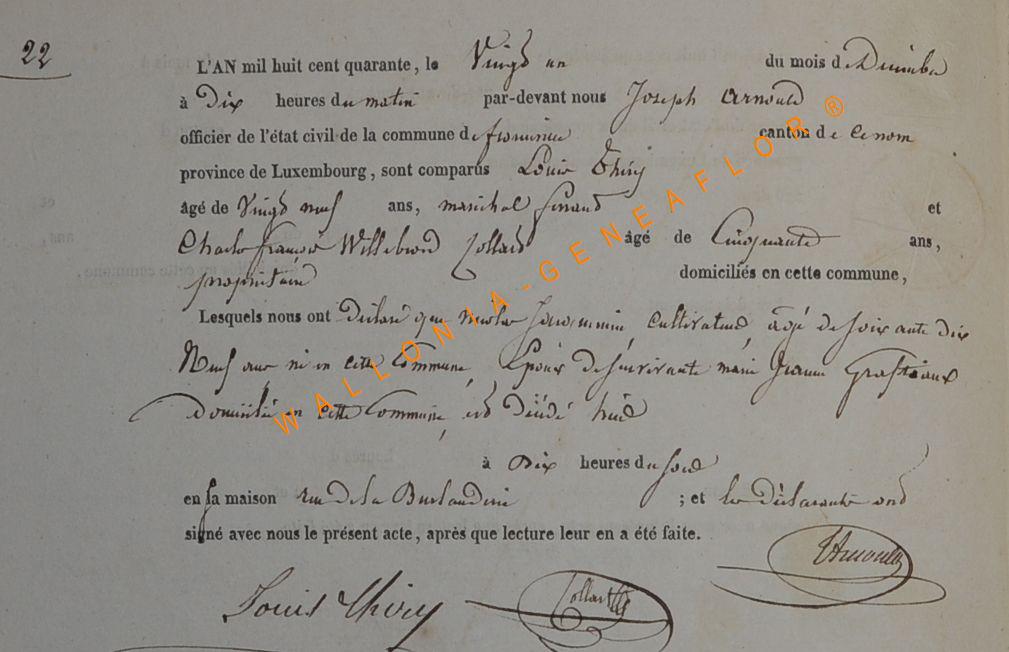 22
L'AN mil huit cent quarante, le Vingt un du mois de Décembre
à Dix heures du matin par-devant nous Joseph Arnould
officier de l'état civil de la commune de canton de ce nom
province de Luxembourg, sont comparus Louis Thiry
âgé de Vingt neuf ans, marechal ferrand et
Charles françois Willebrord Collard âgé de Cinquante ans,
propriétaire domiciliés en cette commune,
Lesquels nous ont déclaré que Nicolas cultivateur âgé de soixante dix
Neuf ans né en cette Commune, Epoux de survivante marie Jeanne
domicilié en cette Commune, est décédé hier
à Dix heures du soir
en sa maison rue de la ; et les déclarants ont
signé avec nous le présent acte, après que lecture leur en a été faite.
JArnould
Louis Thiry Collard
WALLONIA-GENEAFLOR®